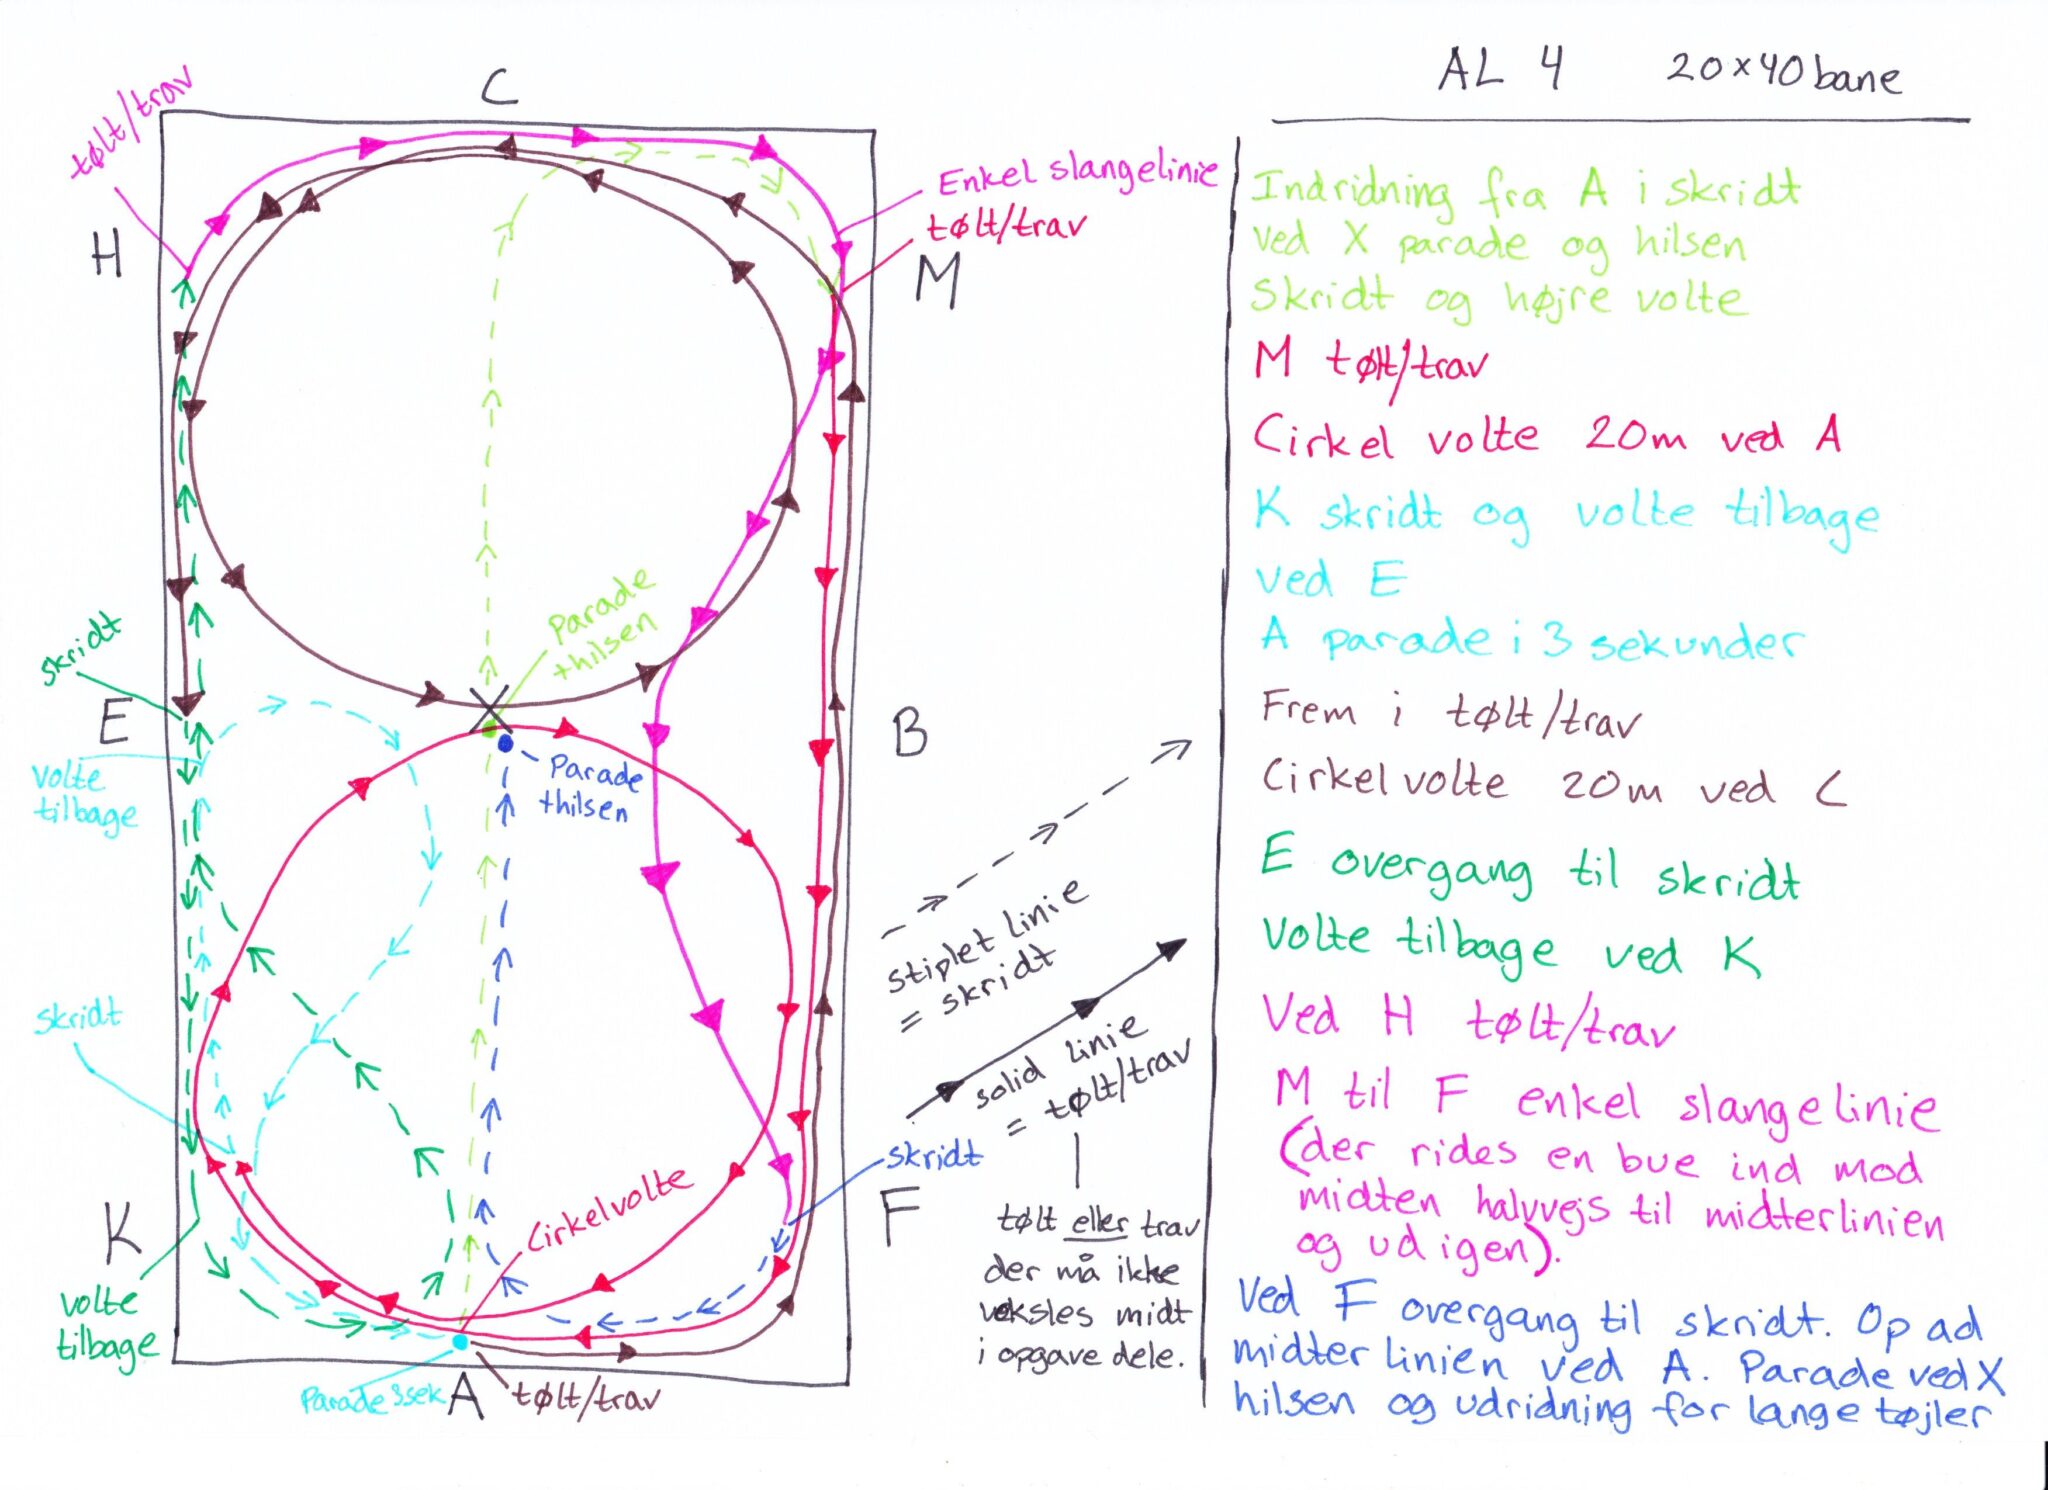 AL 4 20×40bane
C
tølt/trav
H
Enkel slangelinie
tølt/trav
M
skridt
Parade
+hilsen
E
X
B
volte
tilbage
Parade
+hilsen
stiplet linie
= skridt
skridt
solid linie
= tølt/trav
skridt
K
Cirkelvolte
F
tølt eller trav
der må ikke
veksles midt
i opgave dele.
volte
tilbage
Parade 3sek
A
tølt/trav
Indridning fra A i skridt
ved X parade og hilsen
Skridt og højre volte
M tølt/trav
Cirkel volte 20m ved A
K skridt og volte tilbage
ved E
A parade i 3 sekunder
Frem i tølt/trav
Cirkelvolte 20m ved C
E overgang til skridt
Volte tilbage ved K
Ved H tølt/trav
M til F enkel slangelinie
(der rides en bue ind mod
midten halvvejs til midterlinien
og ud igen).
Ved F overgang til skridt. Op ad
midterlinien ved A. Parade ved X
hilsen og udridning for lange tøjler